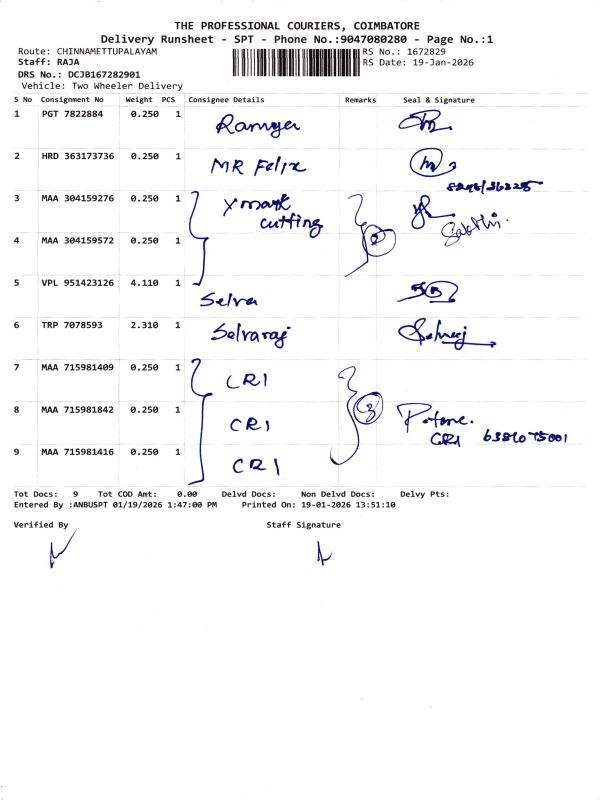 THE PROFESSIONAL COURIERS, COIMBATORE
Delivery Runsheet - SPT - Phone No.:9047080280 - Page No.:1
Route: CHINNAMETTUPALAYAM
RS No.: 1672829
Staff: RAJA
RS Date: 19-Jan-2026
DRS No.: DCJB167282901
Vehicle: Two Wheeler Delivery
S No Consignment No Weight PCS Consignee Details Remarks Seal & Signature
1 PGT 7822884 0.250 1
2 HRD 363173736 0.250 1 MR Felix
3 MAA 304159276 0.250 1 X mark
cutting
4 MAA 304159572 0.250 1 2
5 VPL 951423126 4.110 1 Selva
6 TRP 7078593 2.310 1 Selvaraj
7 MAA 715981409 0.250 1 CRI
8 MAA 715981842 0.250 1 CRI 3
CRI
9 MAA 715981416 0.250 1 CRI
Tot Docs: 9 Tot COD Amt: 0.00 Delvd Docs: Non Delvd Docs: Delvy Pts:
Entered By :ANBUSPT 01/19/2026 1:47:00 PM Printed On: 19-01-2026 13:51:10
Verified By Staff Signature